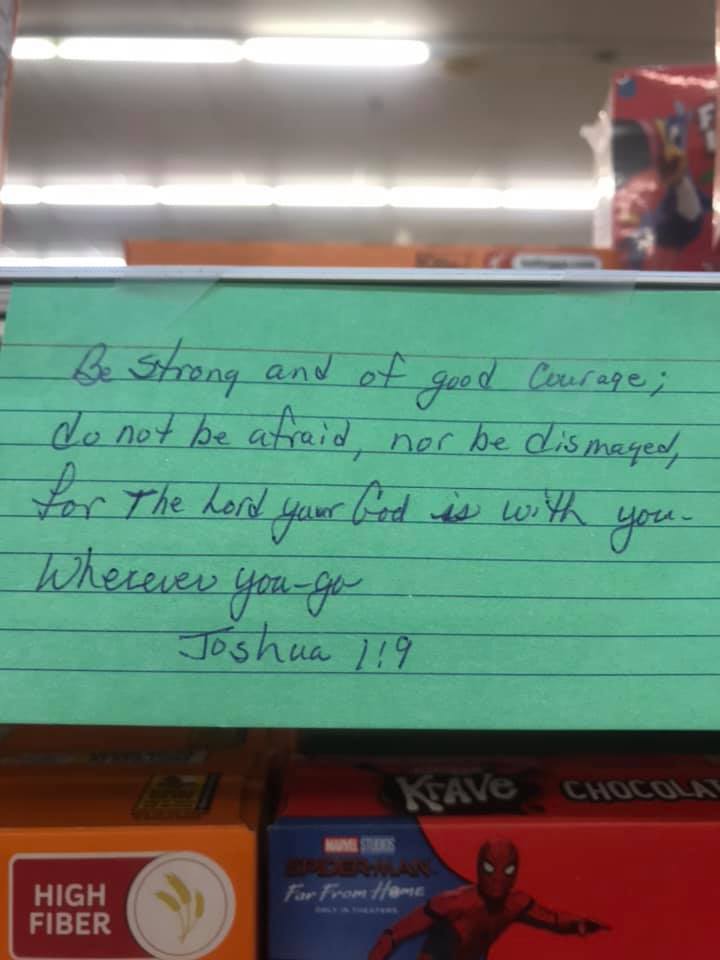 Be strong and of good courage;
do not be afraid, nor be dismayed,
for The Lord your God is with you-
Wherever you-go
Joshua 1:9
KRAVE CHOCOLAT
MARVEL STUDIOS
SPIDER-MAN
Far From Home
ONLY IN THEATERS
HIGH
FIBER